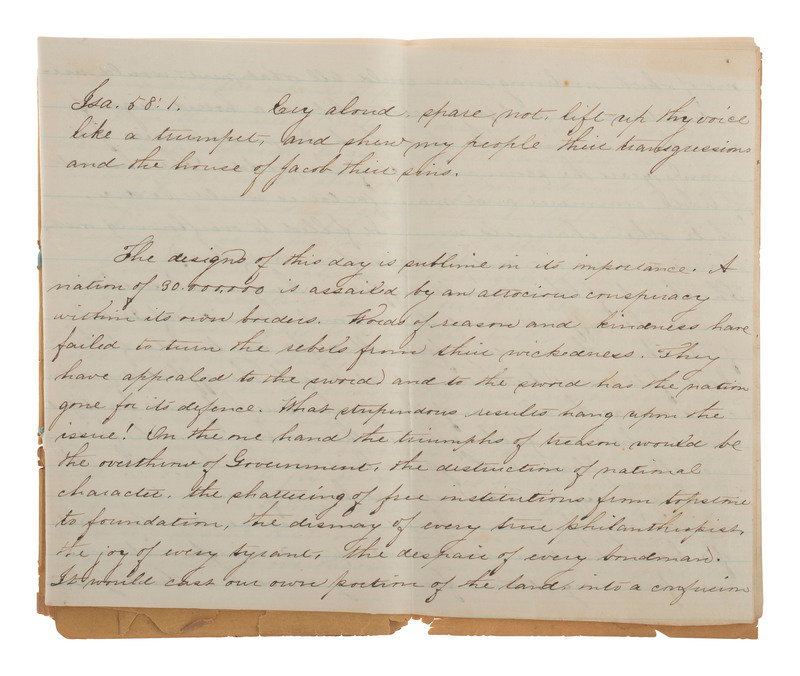 Isa. 58:1. Cry aloud, spare not, lift up thy voice
like a trumpet, and shew my people their transgressions
and the house of Jacob their sins.
The designs of this day is sublime in its importance. A
nation of 30.000,000 is assailed by an atrocious conspiracy
within its own borders. Words of reason and kindness have
failed to turn the rebels from their wickedness. They
have appealed to the sword, and to the sword has the nation
gone for its defence. What stupendous results hang upon the
issue! On the one hand the triumphs of treason would be
the overthrow of Government, the destruction of national
character, the shattering of free institutions from topstone
to foundation, the dismay of every true philanthropist,
the joy of every tyrant, the despair of every bondman.
It would cast our own portion of the land, into a confusion